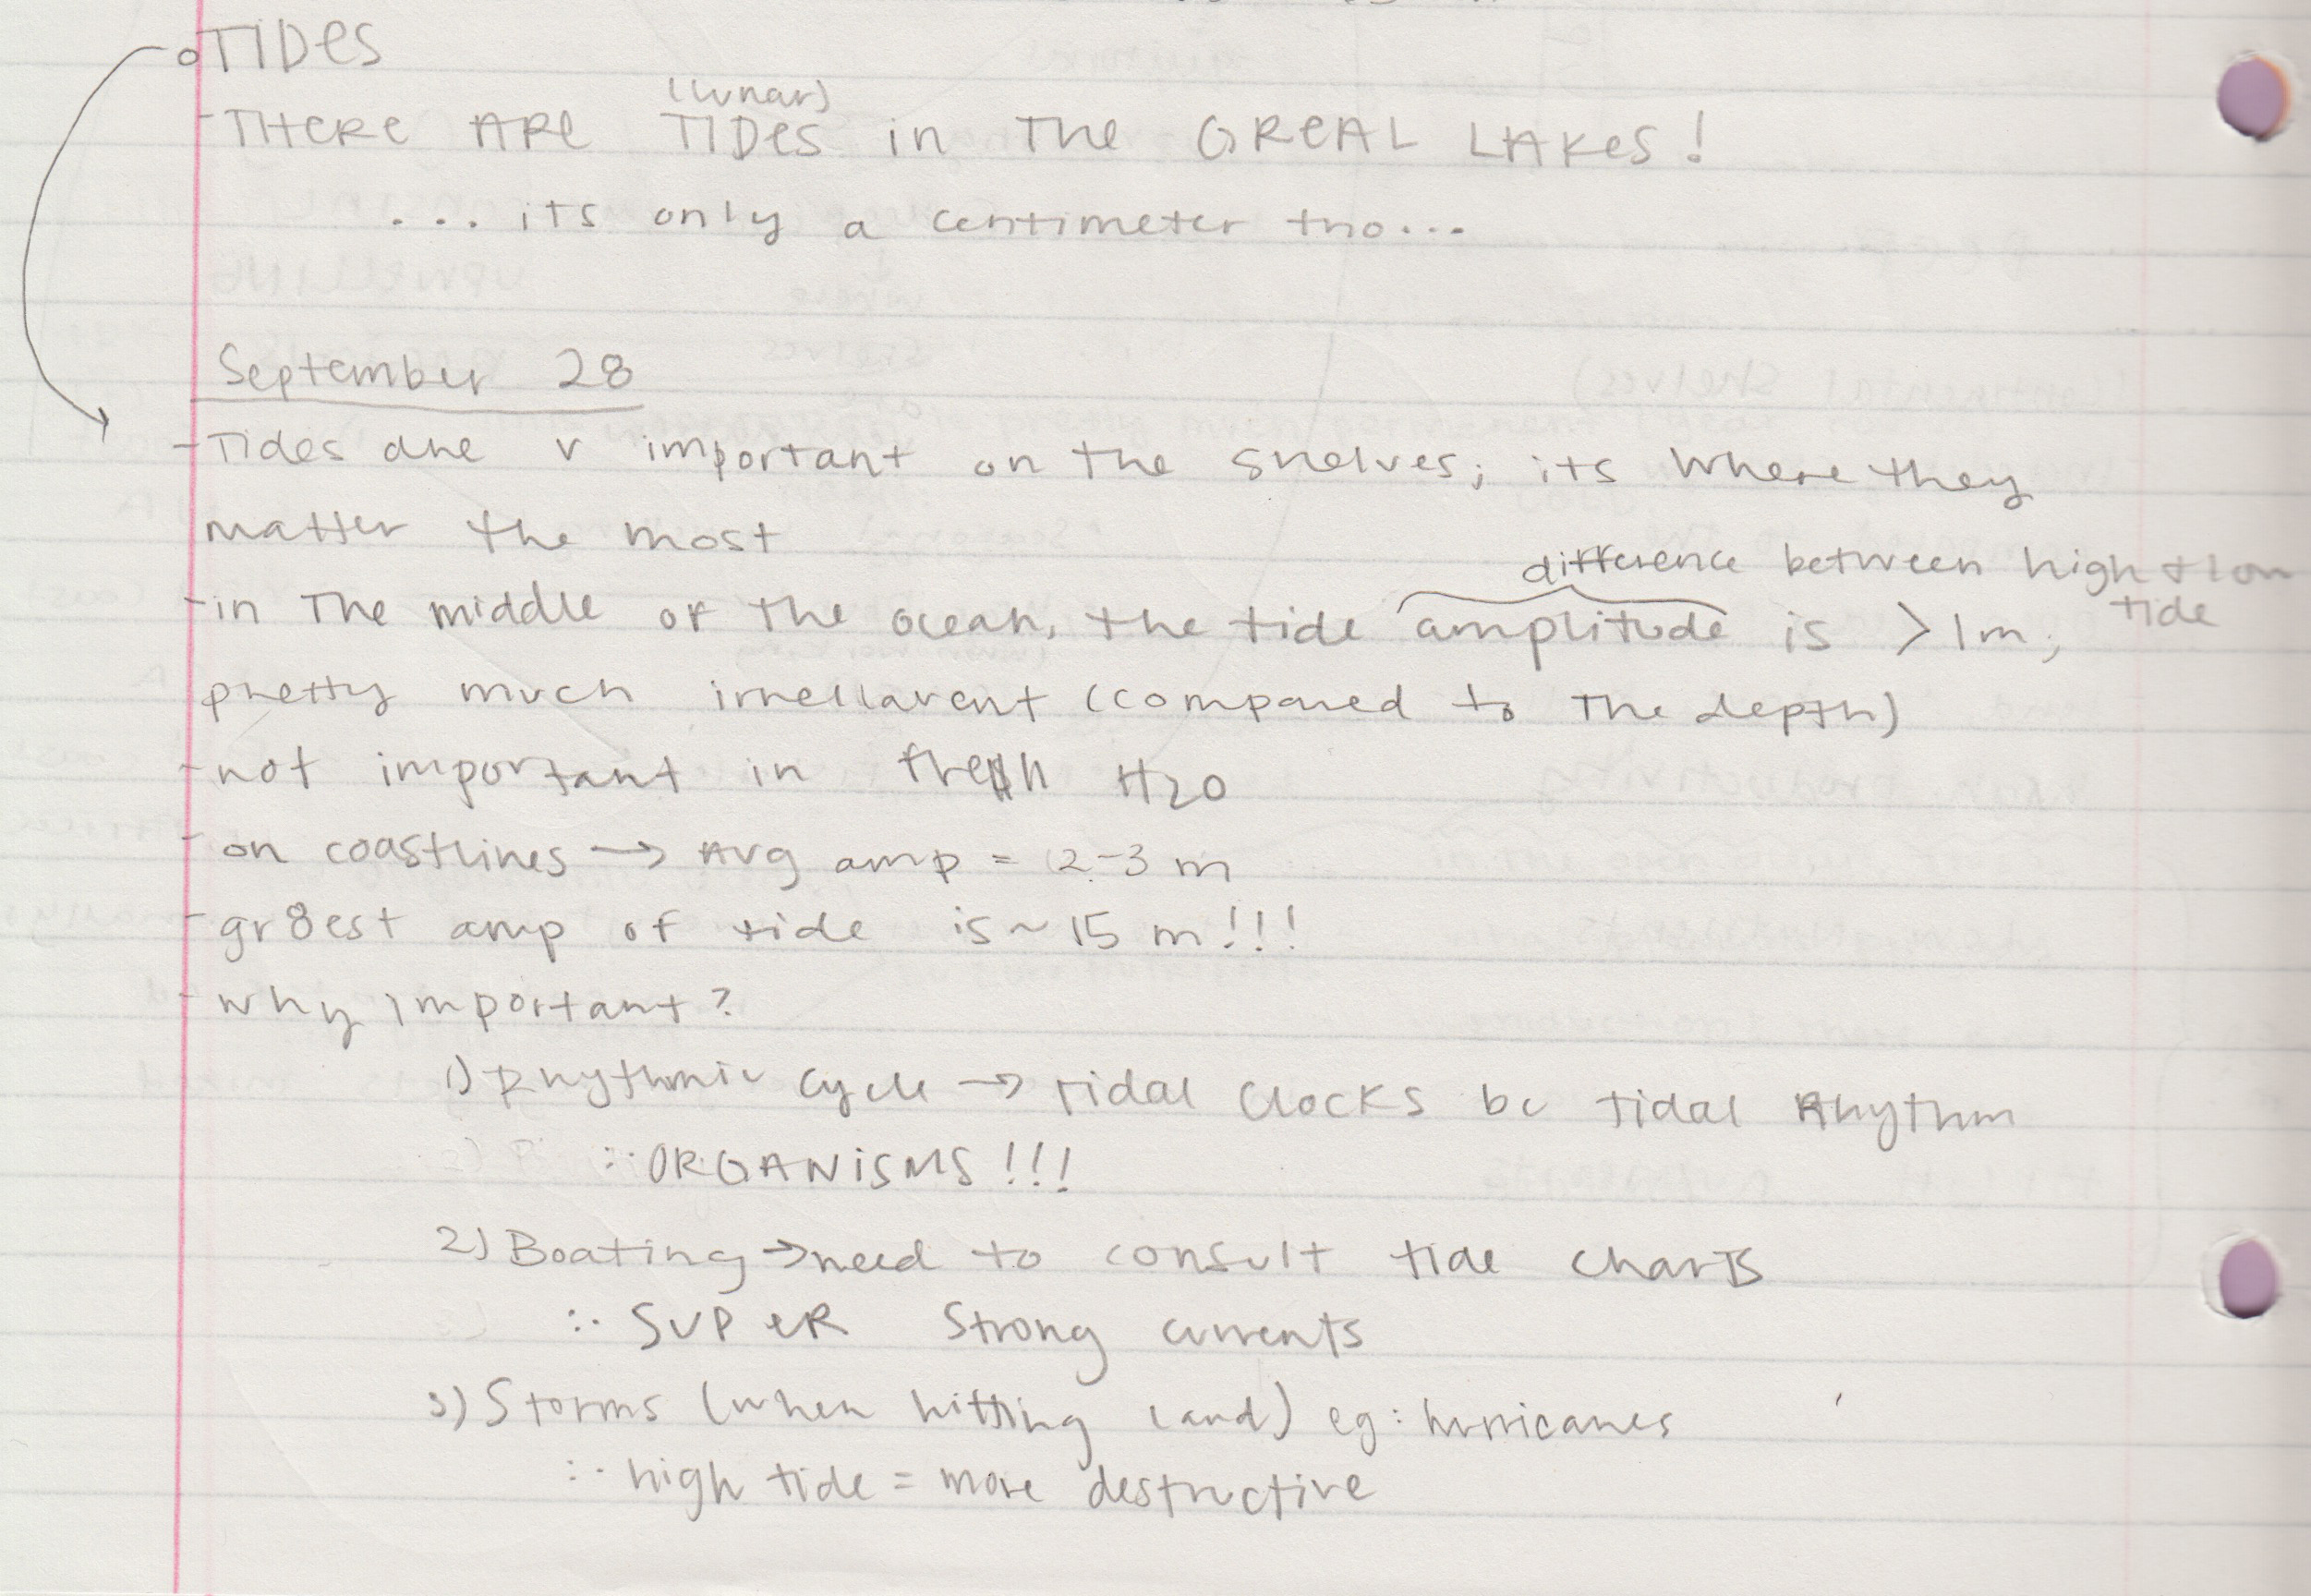 TIDES
(lunar)
- THERE ARE TIDES in THE GREAL LAKES!
... its only a centimeter tho...
September 28
- Tides are v important on the shelves; its where they
matter the most
difference between high + low
tide
- in the middle of the ocean, the tide amplitude is > 1m;
pretty much irrellavent (compared to the depth)
- not important in fresh H2O
- on coastlines → Avg amp = 2-3 m
- gr8est amp of tide is ~ 15 m!!!
- why important?
1) Rhythmic cycle → tidal clocks bc tidal Rhythm
∴ ORGANISMS!!!
2) Boating → need to consult tide charts
∴ SUPER strong currents
3) Storms (when hitting land) eg: hurricanes
∴ high tide = more destructive